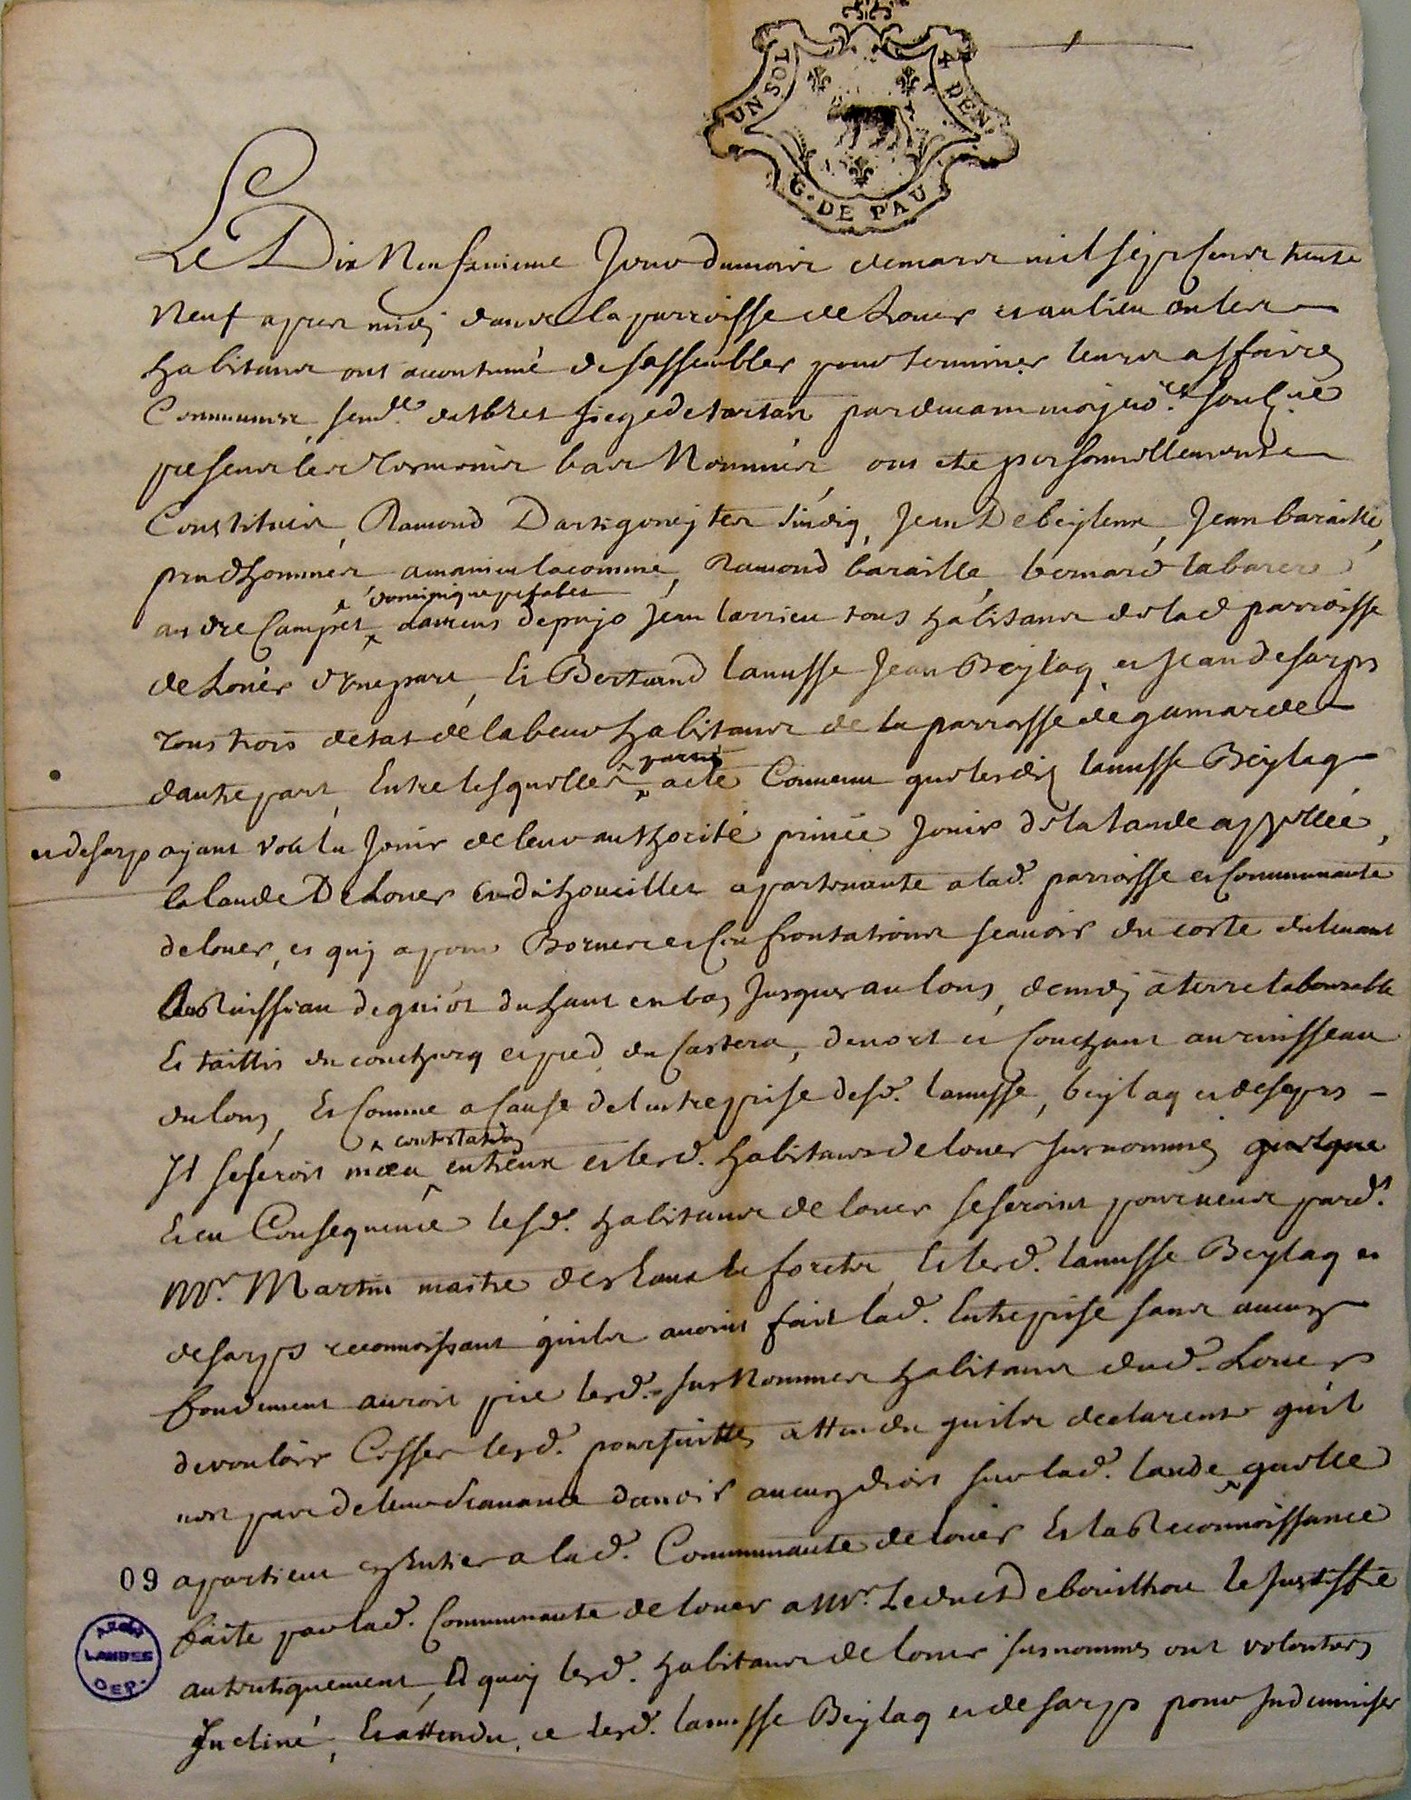 UN SOL 4 DEN.
G. DE PAU
Le Dix Neufvieme Jour du mois de mars mil sept cens trente
Neuf apres midy dans la parroisse de Louer et au lieu ou les
habitans ont acoutumé de sassembler pour terminer leurs affaires
Communes send.lt dalbret siege de tartas pardevant moy no.re
presens les temoins bas Nommés ont ete personnellement
Constitués, Ramond Dartigoueyter sindiq, Jean Debeylenx, Jean baraille,
prudhommes amanieu lacomme, Ramond baraille bernard labarere
andre Campet dominique prefabes laurens depujo Jean larrieu tous habitans de lad parroisse
de Louer d'une part, Et Bertrand lanusse Jean Beylaq et Jean desarps
tous trois detat de labeur habitans de la parroisse de gamarde
dautre part, Entre lesquelles parties a eté Convenu que lesdis lanusse Beylaq
et desarps ayant voulu Jouir de leur authorité privée Jouir de la lande appellée,
la lande De Louer en dihouilles apartenante a lad. parroisse et Communauté
de louer, et quy a pour Bornes et Confrontations scavoir du costé du levant
Au Ruisseau de guiot du haut en bas Jusques au lons, de midy a terre labourable
Et taillis du couthurq et pred du Castera, de nort et Couchant au ruisseau
du lons, Et Comme a Cause de lentreprise desd. lanusse, beylaq et desarps -
Il seseroit meu contestation entreux et lesd. habitans de louer surnommés quelque
Et en Consequence lesd. habitans de louer seseroint pourveus pard.t
Mr. Martin maitre des Eaux et forets, Et lesd. lanusse Beylaq et
desarps reconnoissant quils avoint fait lad. Entreprise sans aucun
fondement auroit prié lesd. susNommes habitans dud. Louer
de vouloir Cesser lesd. poursuittes attendu quils declarent quil
nest pas de leur scavance davoir aucun droit sur lad. lande quelle
apartient en Entier a lad. Communauté de louer Et la Reconnoissance
faite par lad. Communauté de louer a Mr. Leduc De bouillon le Justiffie
autentiquement, A quoy lesd. habitans de louer susnommés ont volontiers
Incliné, Et attendu ce lesd. lanusse Beylaq et desarps pour Indemniser
09
ARCH.
LANDES
DEP.